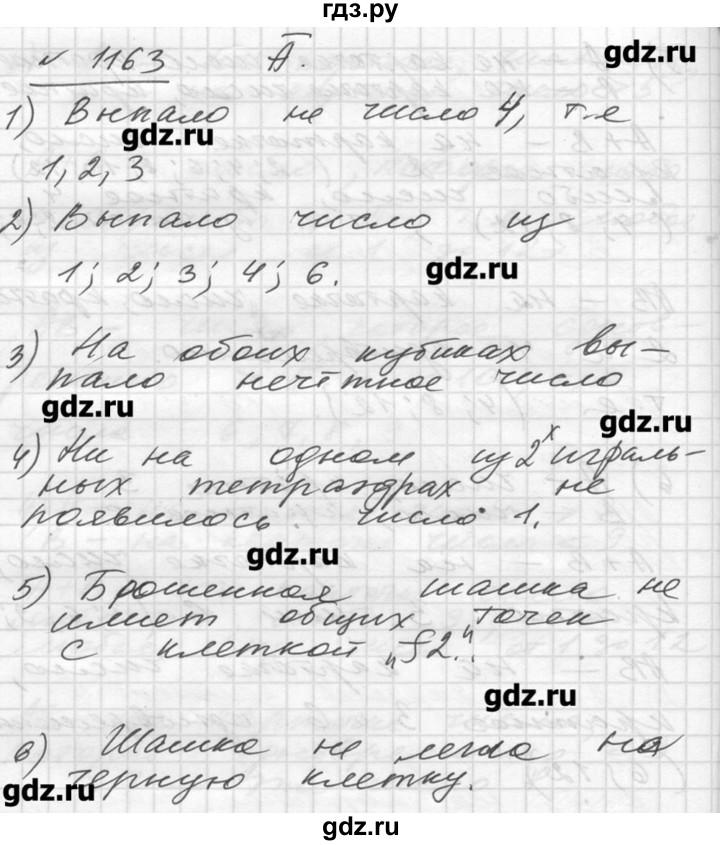 гдз.ру
№ 1163 Ā.
gdz.ru
1) Выпало не число 4, т.е
gdz.ru
1, 2, 3
2) Выпало число из
1; 2; 3; 4; 6.
gdz.ru
3) На обоих кубиках вы-
пало нечётное число
gdz.ru
gdz.ru
4) Ни на одном из 2х играль-
ных тетраэдрах не
появилось число 1.
gdz.ru
5) Брошенная шашка не
имеет общих точек
с клеткой „f2.“
gdz.ru
6) Шашка не легла на
черную клетку.
gdz.ru
gdz.ru